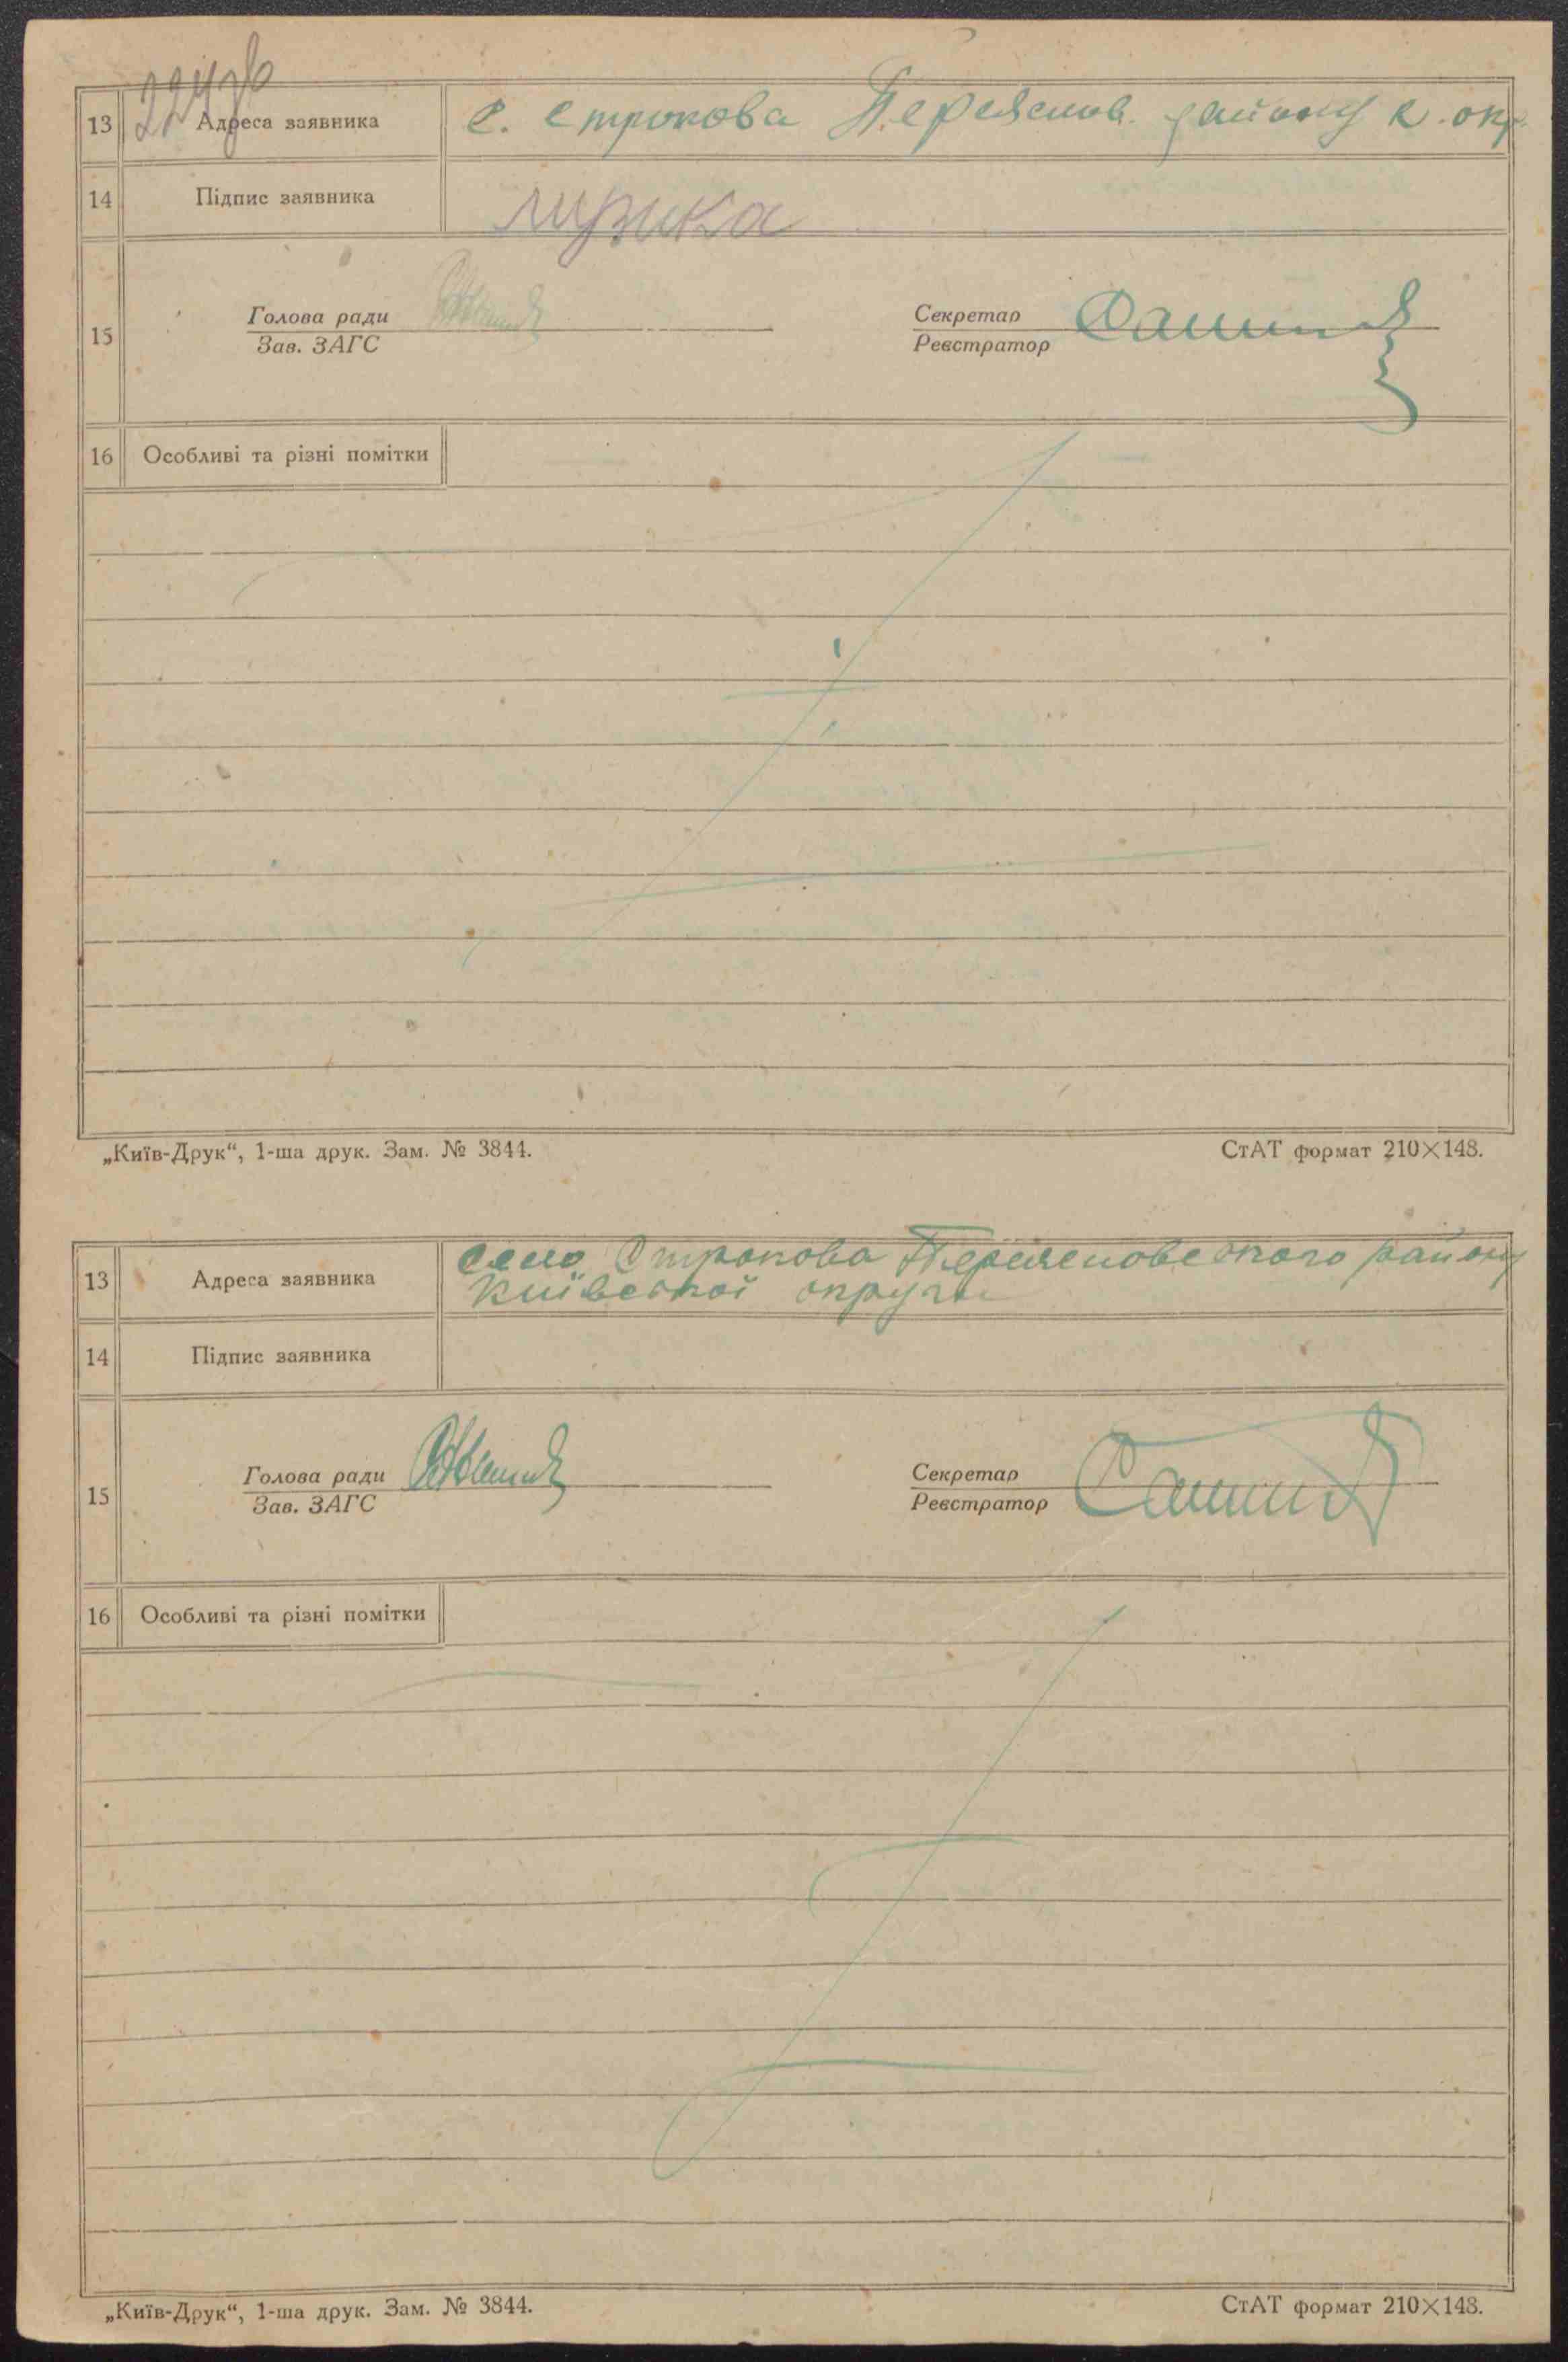 13 Адреса заявника с. Строкова Переяслов. району К. окр.
14 Підпис заявника Лирика
15 Голова ради Секретар
Зав. ЗАГС Реєстратор
16 Особливі та різні помітки
„Київ-Друк“, 1-ша друк. Зам. № 3844. СтАТ формат 210×148.
13 Адреса заявника село Строкова Переясловського району
Київської округи
14 Підпис заявника
15 Голова ради Секретар
Зав. ЗАГС Реєстратор
16 Особливі та різні помітки
„Київ-Друк“, 1-ша друк. Зам. № 3844. СтАТ формат 210×148.